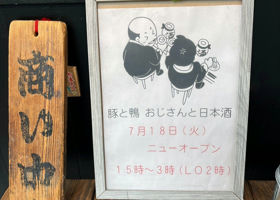 商い中
豚と鴨 おじさんと日本酒
7月18日(火)
ニューオープン
15時〜3時(LO2時)